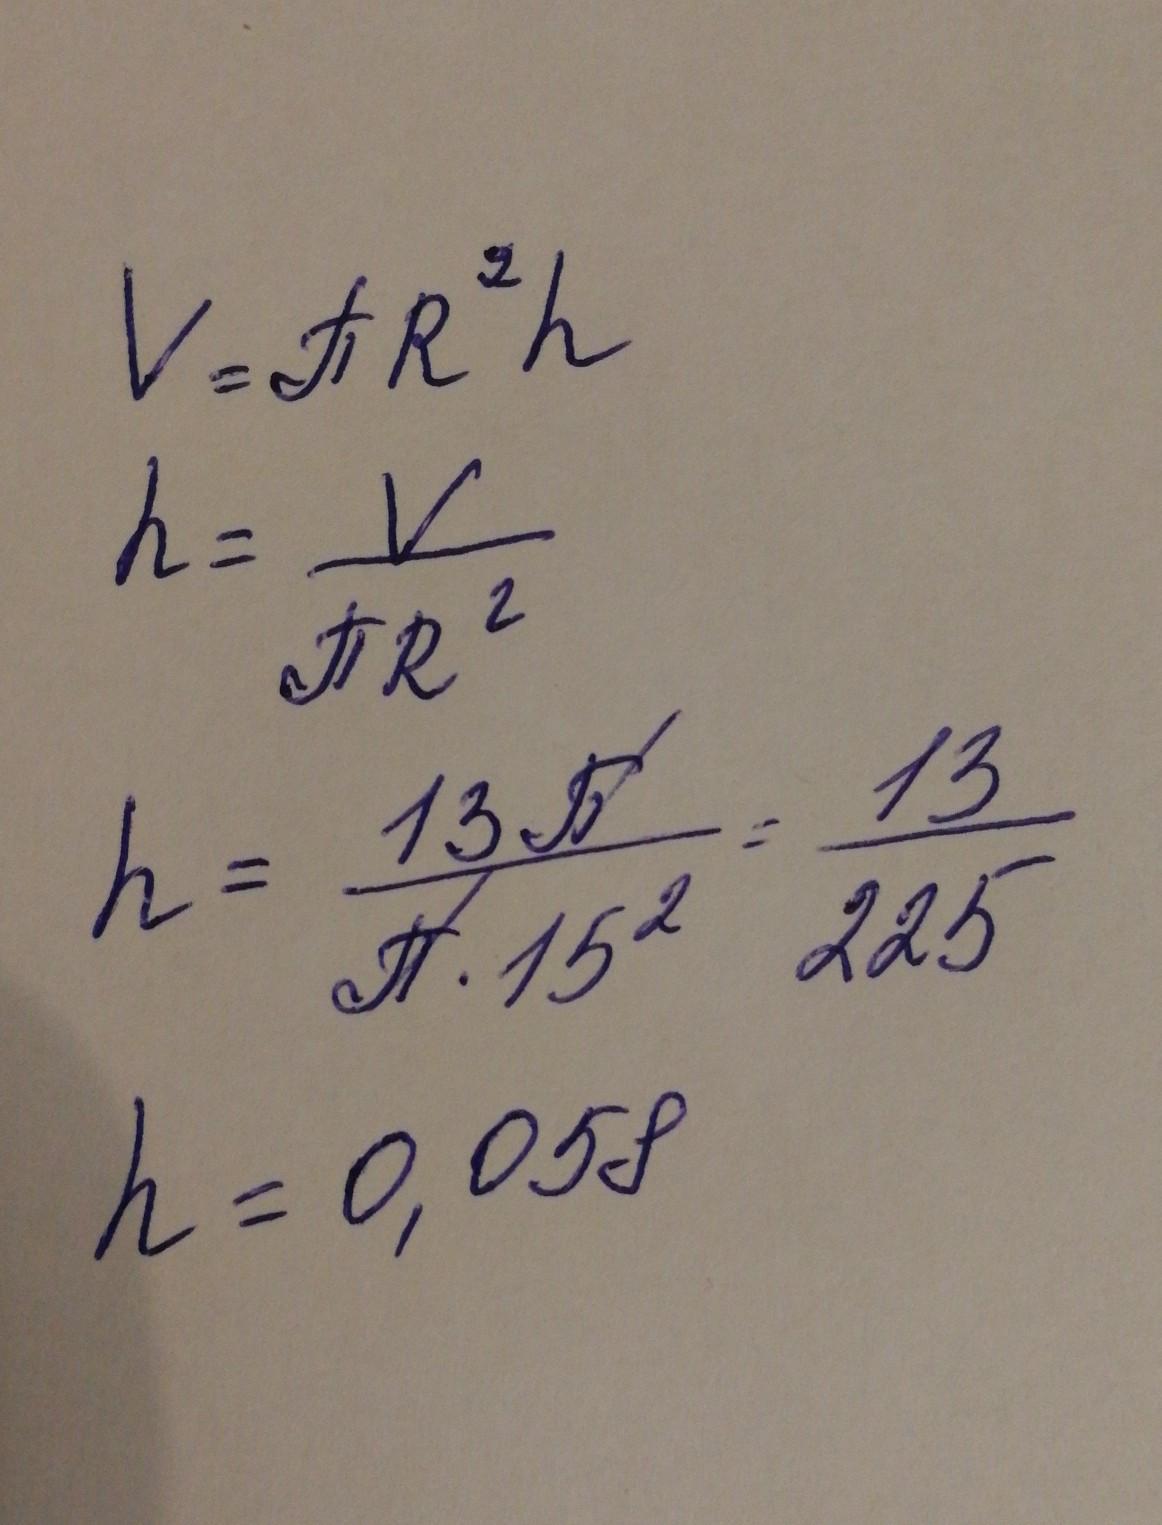 V = πR²h
h = V / πR²
h = 13π / π · 15² = 13 / 225
h = 0,058